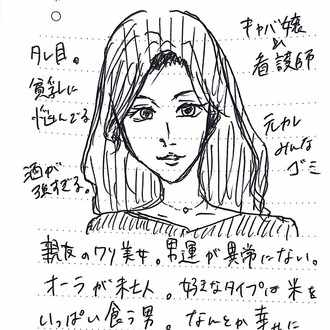 タレ目。
貧乳に
悩んでる
酒が
強すぎる。
キャバ嬢
&
看護師
元カレ
みんな
ゴミ
親友のワリ美女。男運が異常にない。
オーラが未亡人。好きなタイプは米を
いっぱい食う男。なんとか幸せに